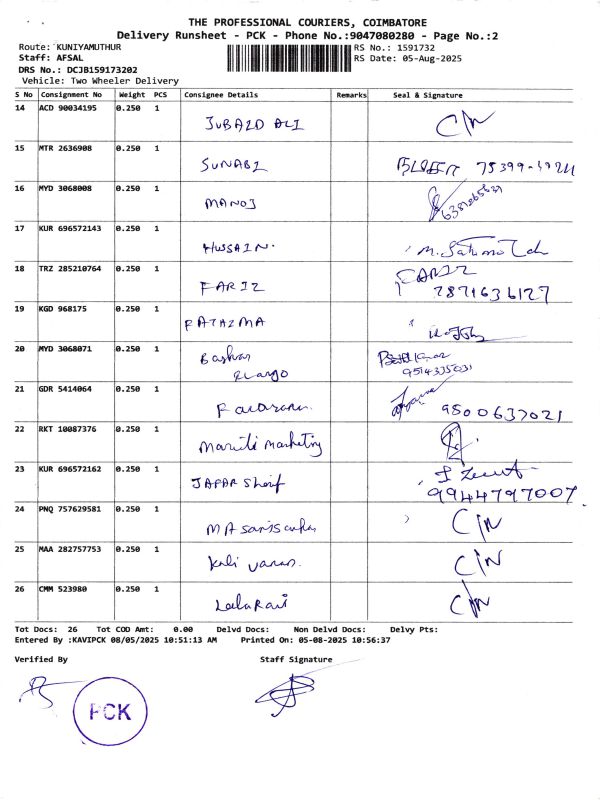 THE PROFESSIONAL COURIERS, COIMBATORE
Delivery Runsheet - PCK - Phone No.:9047080280 - Page No.:2
Route: KUNIYAMUTHUR RS No.: 1591732
Staff: AFSAL RS Date: 05-Aug-2025
DRS No.: DCJB159173202
Vehicle: Two Wheeler Delivery
S No Consignment No Weight PCS Consignee Details Remarks Seal & Signature
14 ACD 90034195 0.250 1 JUBAID ALI C/N
15 MTR 2636908 0.250 1 SUNABI
16 MYD 3068008 0.250 1 MANOJ
17 KUR 696572143 0.250 1 HUSSAIN.
18 TRZ 285210764 0.250 1 FARIZ FARIZ
7871636127
19 KGD 968175 0.250 1 FATHIMA
20 MYD 3068071 0.250 1 Bashar
9514335031
21 GDR 5414064 0.250 1 9500637021
22 RKT 10087376 0.250 1 Maruti Marketing
23 KUR 696572162 0.250 1 JAFAR Sherif
9944797007
24 PNQ 757629581 0.250 1 C/N
25 MAA 282757753 0.250 1 Kali C/N
26 CMM 523980 0.250 1 LeelaRavi C/N
Tot Docs: 26 Tot COD Amt: 0.00 Delvd Docs: Non Delvd Docs: Delvy Pts:
Entered By :KAVIPCK 08/05/2025 10:51:13 AM Printed On: 05-08-2025 10:56:37
Verified By Staff Signature
PCK